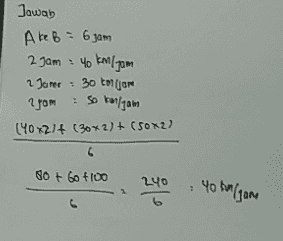 Jawab
A ke B = 6 jam
2 Jam = 40 km/jam
2 Jam = 30 km/jam
2 jam : 50 km/jam
(40x2)+ (30x2)+ (50x2)
6
80 + 60 +100 = 240 : 40 km/jam
6 6